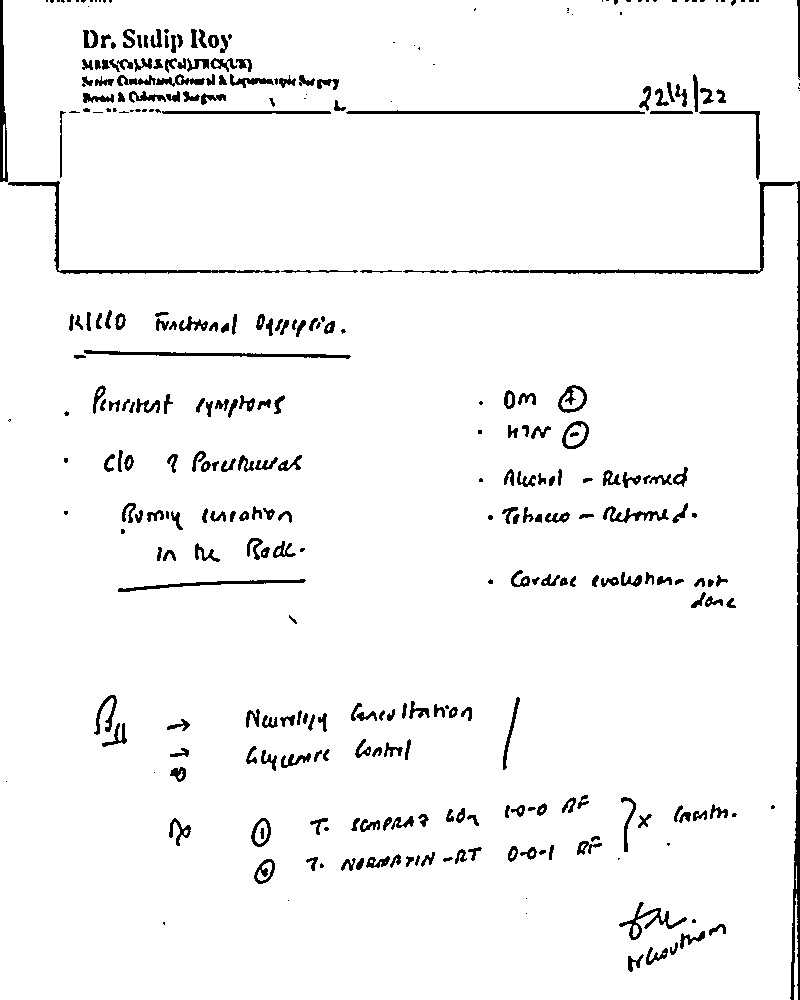 Dr. Sudip Roy
MBBS(Cal),M.S.(Cal),FRCS(UK)
Senior Consultant,General & Laparoscopic Surgery
Breast & Colorectal Surgeon
22/4/22
K/C/O Functional Dyspepsia.
• Persistent symptoms
• C/O ? Paresthesias
• Burning sensation
in the Back.
• DM (+)
• HTN (-)
• Alcohol - Reformed
• Tobacco - Reformed.
• Cardiac evaluation - not
done
→ Neurology Consultation
→ Glycemic Control
Rx ① T. SOMPRAZ 40mg 1-0-0 BF
② T. NORMAXIN-RT 0-0-1 BF
} x 1 month.